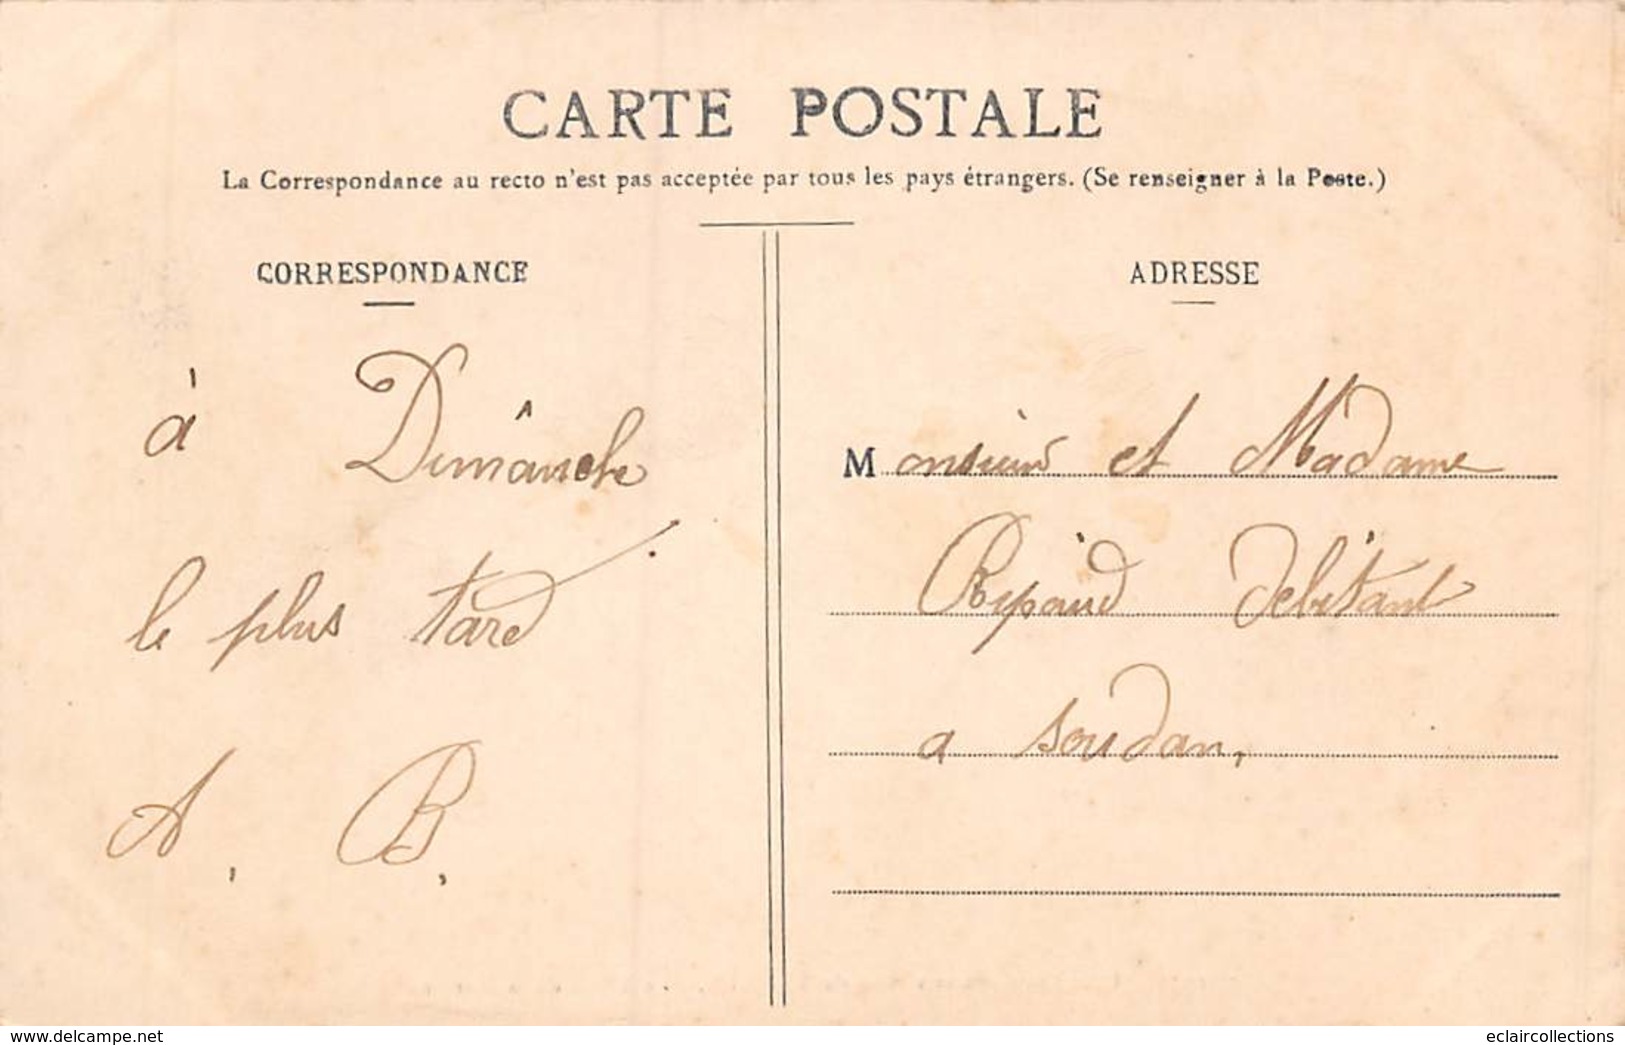 CARTE POSTALE
La Correspondance au recto n'est pas acceptée par tous les pays étrangers. (Se renseigner à la Poste.)
CORRESPONDANCE
à Dimanche
le plus tard.
A, B,
ADRESSE
Monsieur et Madame
Ripaud débitant
a soudan,
delcampe.net
eclaircollections